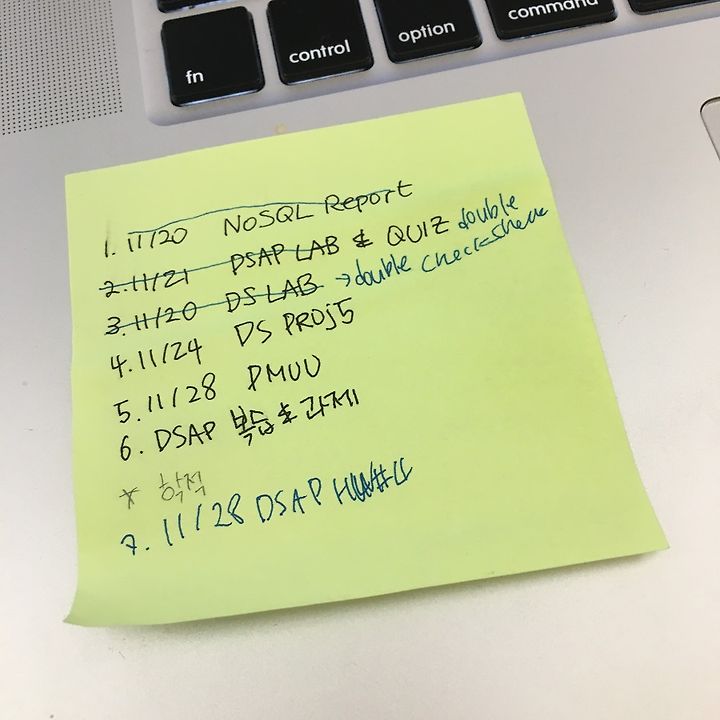 fn control option command
1. 11/20 NoSQL Report
2. 11/21 DSAP LAB & QUIZ double check
3. 11/20 DS LAB → double check
4. 11/24 DS PROJ5
5. 11/28 PMUU
6. DSAP 복습 & 과제
* 학적
7. 11/28 DSAP HW#4